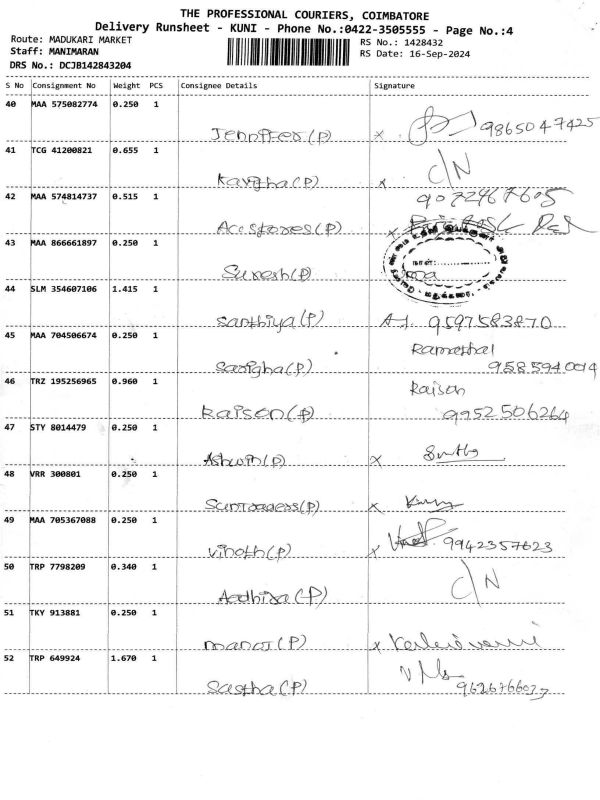 THE PROFESSIONAL COURIERS, COIMBATORE
Delivery Runsheet - KUNI - Phone No.:0422-3505555 - Page No.:4
Route: MADUKARI MARKET
Staff: MANIMARAN
DRS No.: DCJB142843204
RS No.: 1428432
RS Date: 16-Sep-2024
S No Consignment No Weight PCS Consignee Details Signature
40 MAA 575082774 0.250 1
Jennifer(P) x 9865047425
41 TCG 41200821 0.655 1
Kavitha(P) x C/N
42 MAA 574814737 0.515 1
9072967605
Ace stores(P) x
43 MAA 866661897 0.250 1
நாள்:
Suresh(P)
44 SLM 354607106 1.415 1
Santhiya(P) A.J. 9597583870
45 MAA 704506674 0.250 1
Ramethal
Sarigha(P) 9585940014
46 TRZ 195256965 0.960 1
Raison
Raison(P) 9952506264
47 STY 8014479 0.250 1
Ashwin(P) x
48 VRR 300801 0.250 1
(P) x
49 MAA 705367088 0.250 1
Vinoth(P) x 9942357623
50 TRP 7798209 0.340 1
Aadhiya(P) C/N
51 TKY 913881 0.250 1
Manoj(P) x
52 TRP 649924 1.670 1
Sastha(P)